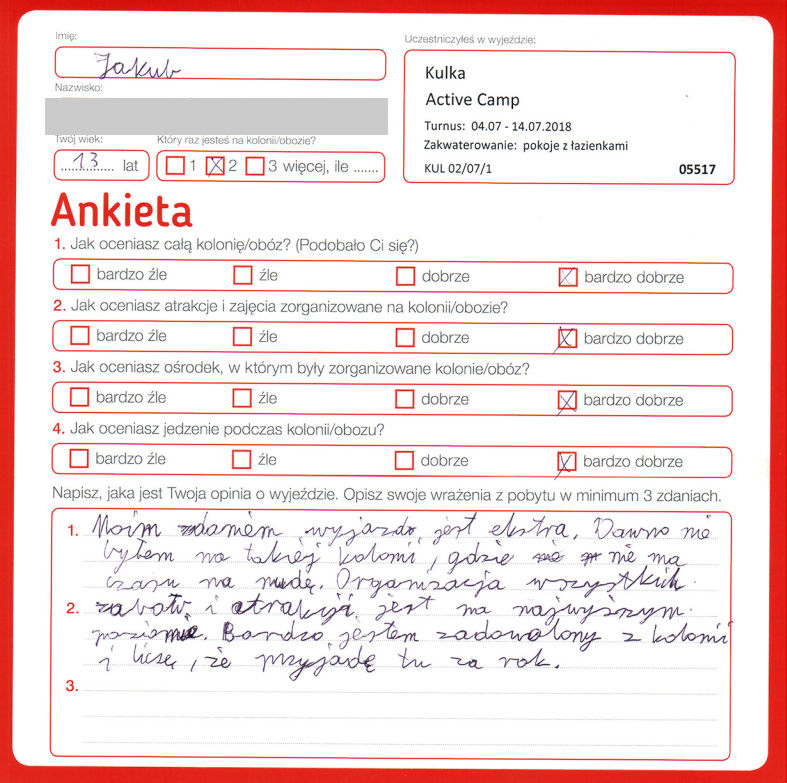 Imię:
Jakub
Uczestniczyłeś w wyjeździe:
Kulka
Active Camp
Turnus: 04.07 - 14.07.2018
Zakwaterowanie: pokoje z łazienkami
KUL 02/07/1 05517
Nazwisko:
Twój wiek:
13 lat
Który raz jesteś na kolonii/obozie?
1 2 3 więcej, ile .......
Ankieta
1. Jak oceniasz całą kolonię/obóz? (Podobało Ci się?)
bardzo źle źle dobrze bardzo dobrze
2. Jak oceniasz atrakcje i zajęcia zorganizowane na kolonii/obozie?
bardzo źle źle dobrze bardzo dobrze
3. Jak oceniasz ośrodek, w którym były zorganizowane kolonie/obóz?
bardzo źle źle dobrze bardzo dobrze
4. Jak oceniasz jedzenie podczas kolonii/obozu?
bardzo źle źle dobrze bardzo dobrze
Napisz, jaka jest Twoja opinia o wyjeździe. Opisz swoje wrażenia z pobytu w minimum 3 zdaniach.
1. Moim zdaniem, wyjazd jest ekstra. Dawno nie
byłem na takiej kolonii, gdzie nie ma
czasu na nudę. Organizacja wszystkich
2. zabaw i atrakcji jest na najwyższym
poziomie. Bardzo jestem zadowolony z kolonii
i liczę, że przyjadę tu za rok.
3.